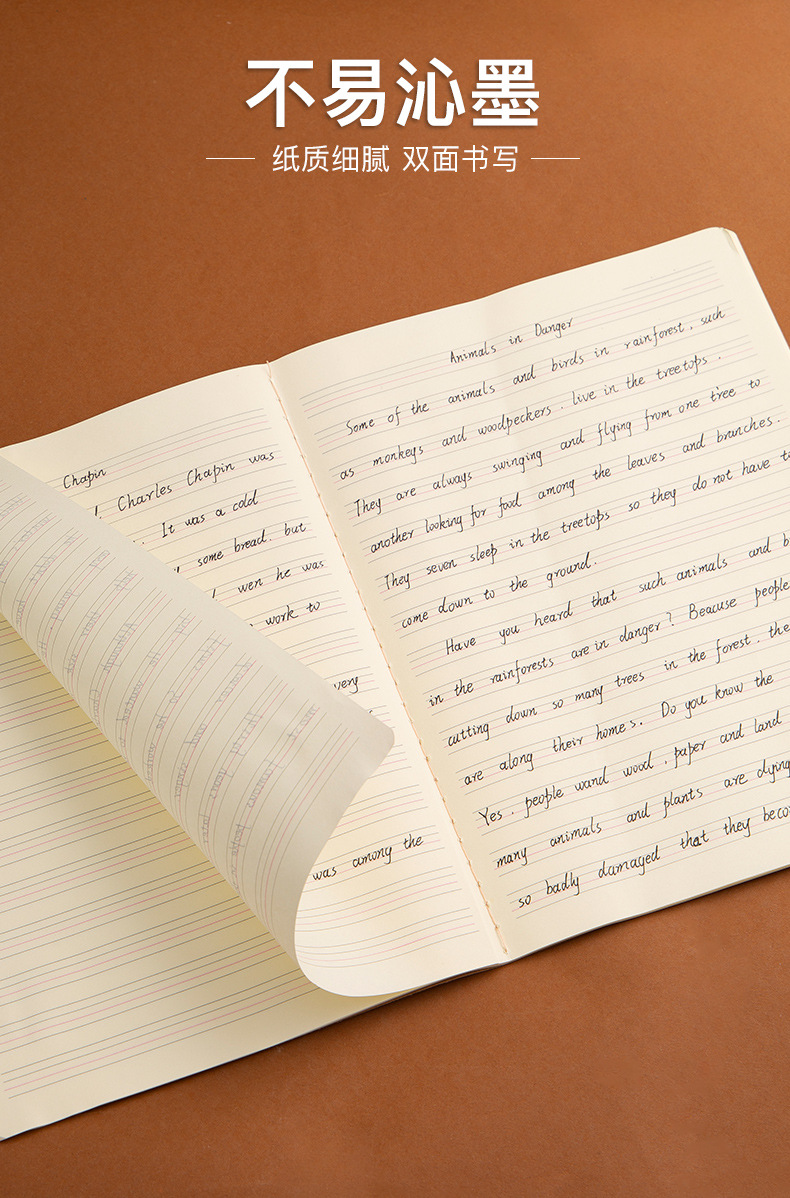 不易沁墨
纸质细腻 双面书写
Animals in Danger
Some of the animals and birds in rainforest, such
as monkeys and woodpeckers. live in the treetops.
They are always swinging and flying from one tree to
another looking for food among the leaves and branches.
They seven sleep in the treetops so they do not have to
come down to the ground.
Have you heard that such animals and
in the rainforests are in danger? Beacuse people
cutting down so many trees in the forest, the
are along their homes. Do you know the
Yes. people wand wood, paper and land
many animals and plants are dying
so badly damaged that they
Chapin
Charles Chapin was
It was a cold
some bread. but
wen he was
work to
very
was among the